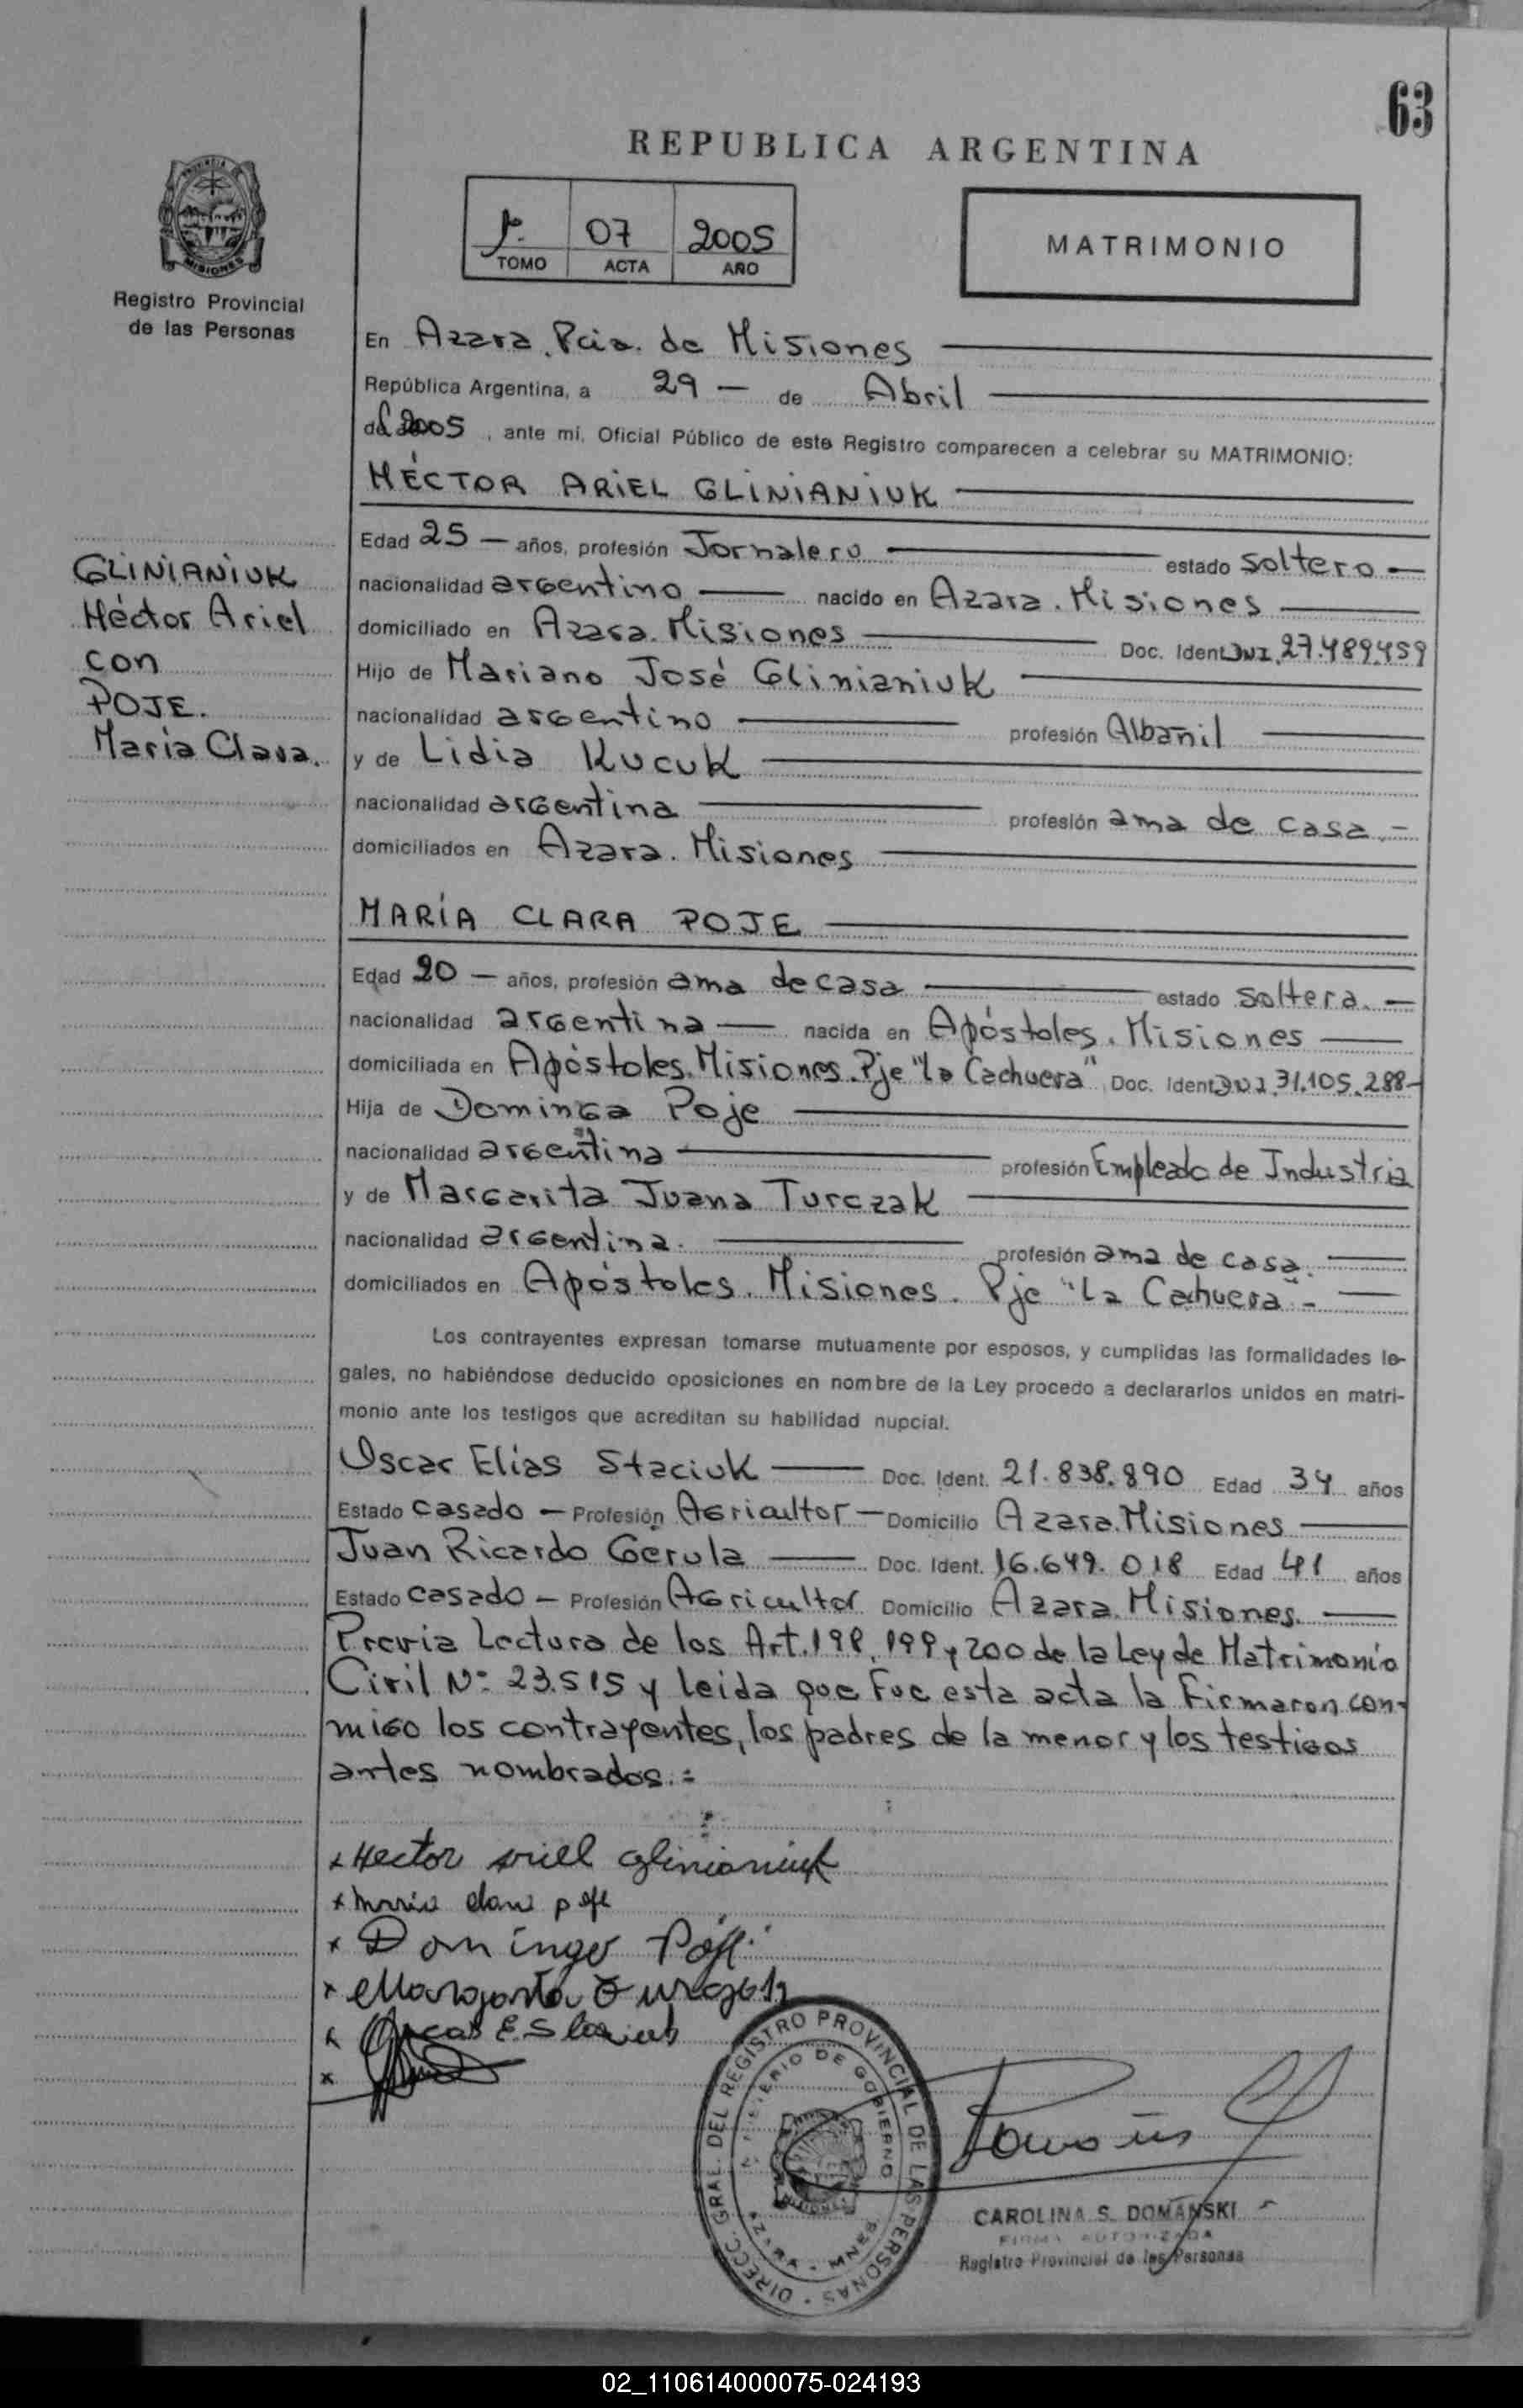 63
REPUBLICA ARGENTINA
07 2005
TOMO ACTA AÑO
MATRIMONIO
PROVINCIA
MISIONES
Registro Provincial
de las Personas
En Azara. Pcia. de Misiones
República Argentina, a 29 — de Abril
del 2005, ante mí, Oficial Público de este Registro comparecen a celebrar su MATRIMONIO:
HÉCTOR ARIEL GLINIANIUK
Edad 25 — años, profesión Jornalero estado soltero —
nacionalidad argentino nacido en Azara. Misiones
domiciliado en Azara. Misiones Doc. Ident DNI. 27.489.459
Hijo de Mariano José Glinianiuk
nacionalidad argentino profesión Albañil
y de Lidia Kucuk
nacionalidad argentina profesión ama de casa. —
domiciliados en Azara. Misiones
GLINIANIUK
Héctor Ariel
con
POJE.
María Clara.
MARÍA CLARA POJE
Edad 20 — años, profesión ama de casa estado soltera. —
nacionalidad argentina — nacida en Apóstoles. Misiones
domiciliada en Apóstoles. Misiones. Pje "La Cachuera" Doc. Ident DNI 31.105.288-
Hija de Dominga Poje
nacionalidad argentina profesión Empleado de Industria
y de Margarita Juana Turczak
nacionalidad argentina. profesión ama de casa.
domiciliados en Apóstoles. Misiones. Pje "La Cachuera" -
Los contrayentes expresan tomarse mutuamente por esposos, y cumplidas las formalidades le-
gales, no habiéndose deducido oposiciones en nombre de la Ley procedo a declararlos unidos en matri-
monio ante los testigos que acreditan su habilidad nupcial.
Oscar Elías Staciuk Doc. Ident. 21.838.890 Edad 34 años
Estado casado — Profesión Agricultor — Domicilio Azara. Misiones
Juan Ricardo Gerula Doc. Ident. 16.649.018 Edad 41 años
Estado casado — Profesión Agricultor Domicilio Azara. Misiones.
Previa Lectura de los Art. 198, 199 y 200 de la Ley de Matrimonio
Civil Nº 23.515 y leída que fue esta acta la firmaron con-
migo los contrayentes, los padres de la menor y los testigos
antes nombrados.=
x Hector ariel glinianiuk
x maria clara poje
x Domingo Poje
x Margarita
x Oscar E. Staciuk
x
DIRECC. GRAL. DEL REGISTRO PROVINCIAL DE LAS PERSONAS
MINISTERIO DE GOBIERNO
AZARA - MNES.
CAROLINA S. DOMANSKI
FIRMA AUTORIZADA
Registro Provincial de las Personas
02_110614000075-024193